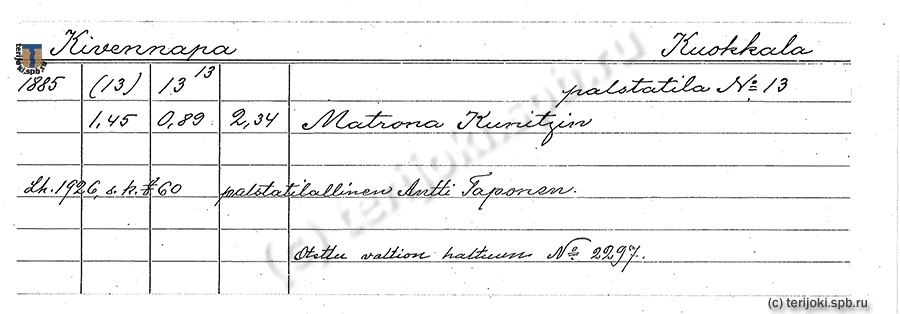 Kivennapa Kuokkala
1885 (13) 13 13 palstatila No 13
1,45 0,89 2,34 Matrona Kunitzin
Lk. 1926, s. k. 60 palstatilallinen Antti Taponen.
Otettu valtion haltuun No 2297.
(c) terijoki.spb.ru
terijoki.spb.ru
(c) terijoki.spb.ru